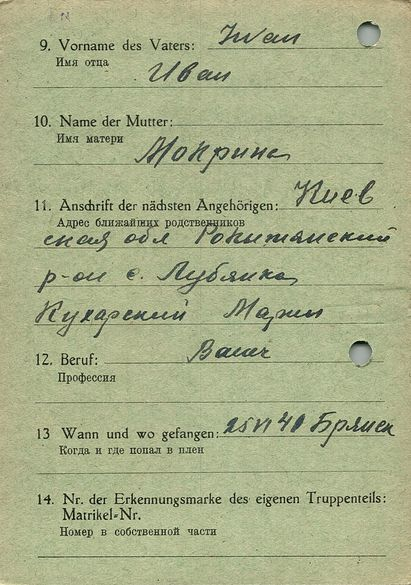 9. Vorname des Vaters: Iwan
Имя отца
Иван
10. Name der Mutter:
Имя матери
Мокрина
11. Anschrift der nächsten Angehörigen: Киев
Адрес ближайших родственников
ская обл Рокитянский
р-он с. Лубянка
Кухарский Мария
12. Beruf: Bauer
Профессия
13 Wann und wo gefangen: Брянск
Когда и где попал в плен
14. Nr. der Erkennungsmarke des eigenen Truppenteils:
Matrikel-Nr.
Номер в собственной части